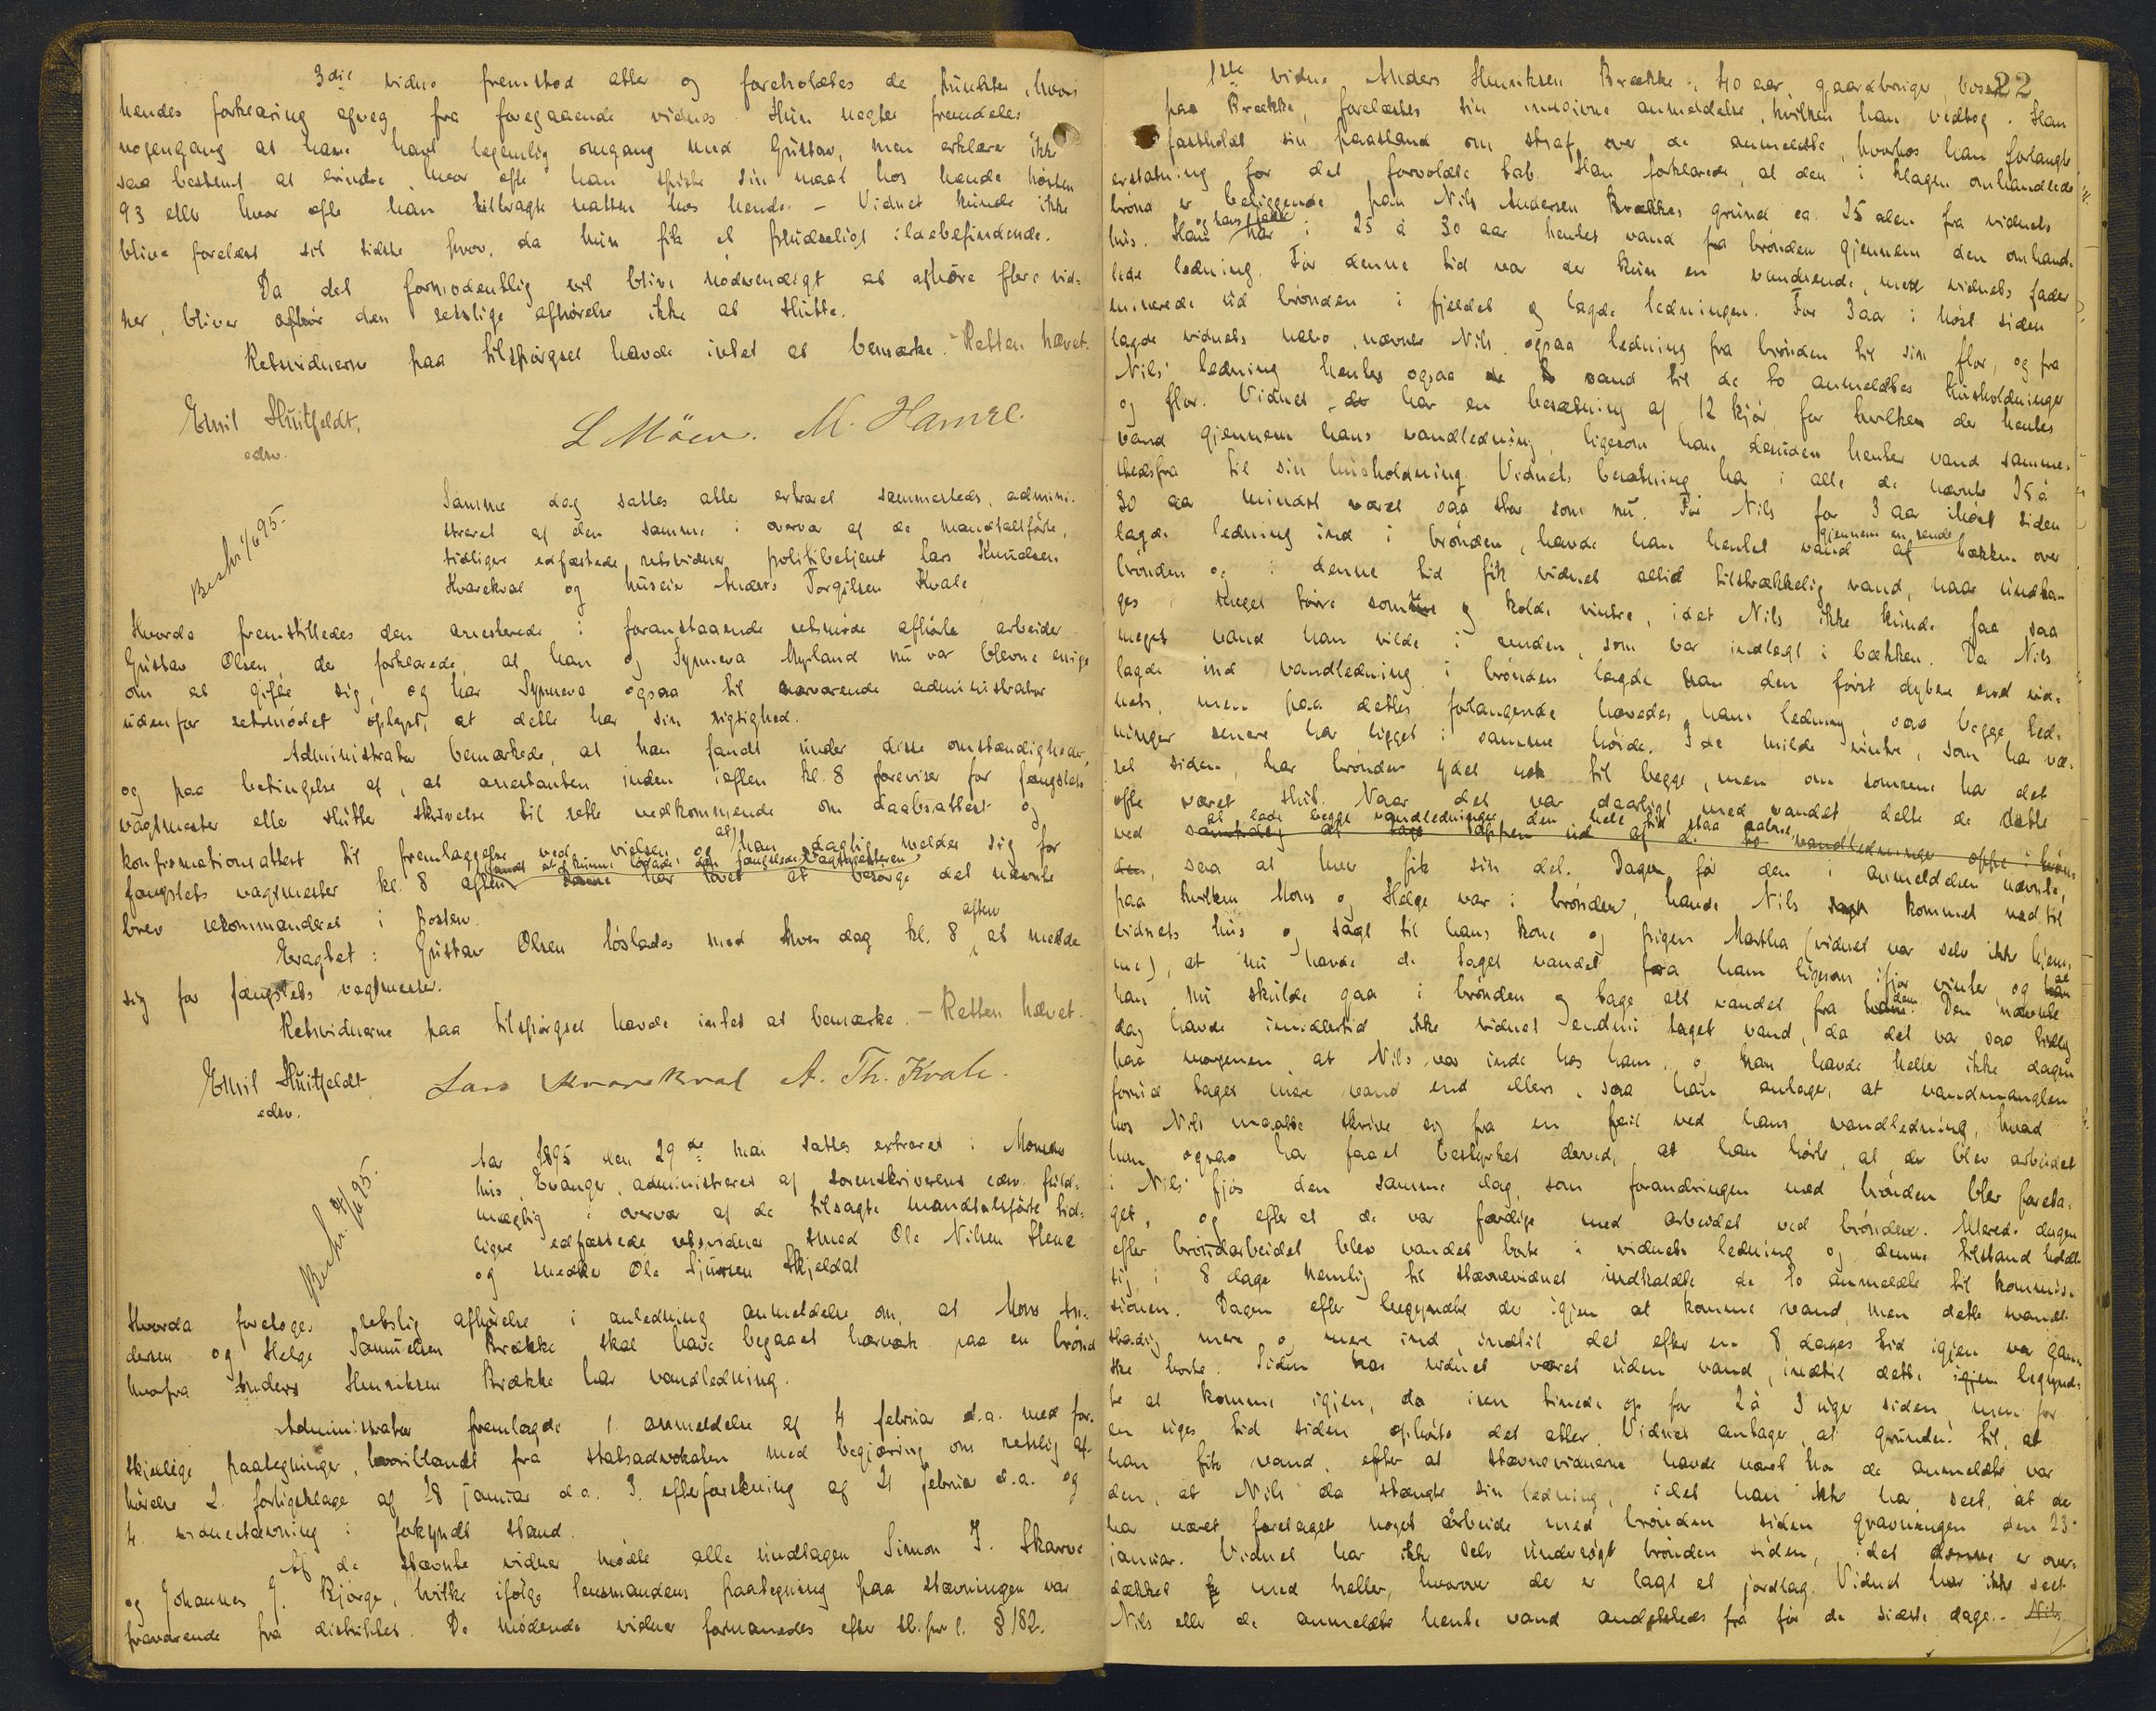 3die vidne fremstod atter og foreholdtes de punkter, hvori
hendes forklaring afveg fra foregaaende vidnes. Hun negter fremdeles
nogengang at have havt legemlig omgang med Gustav, men erklærer ikke
saa bestemt at erindre, hvor ofte han spiste sin mad hos hende høsten
93 eller hvor ofte han tilbragte natten hos hende. – Vidnet kunde ikke
blive forelæst sit sidste svar, da hun fik et pludseligt ildebefindende.
Da det formodentlig vil blive nødvendigt at afhøre flere vid-
ner, bliver den retslige afhørelse ikke at slutte.
Retsvidnerne paa tilspørgsel havde intet at bemærke. – Retten hævet.
Emil Huitfeldt,
edsv.
L Möen. M. Hamre.
Beskr. 1/6 95.
Samme dag sattes atter extraret sammesteds, admini-
streret af den samme i overvær af de mandtalsførte,
tidligere edfæstede retsvidner politibetjent Lars Knudsen
Kvarekval og huseier Anders Torgilsen Kvale.
Hvorda fremstilledes den arresterede i foranstaaende retsmøde afhørte arbeider
Gustav Olsen, der forklarede, at han og Synneva Myrland nu var blevne enige
om at gifte sig, og har Synneva ogsaa til nærværende administrator
udenfor retsmødet oplyst, at dette har sin rigtighed.
Administrator bemærkede, at han fandt under disse omstændigheder,
og paa betingelse af, at arrestanten inden iaften kl. 8 foreviser for fængslets
vagtmester eller slutter skrivelse til rette vedkommende om daabsattest og
konfirmationsattest til fremlæggelse ved vielsen og at han daglig melder sig for
fængslets vagtmester kl. 8 aften fandt at kunne løslade den fængslede. Vagtmesteren
har lovet at besørge det nævnte
brev rekommanderet i posten.
Eragtet: Gustav Olsen løslades mod hver dag kl. 8 aften at melde
sig for fængslets vagtmester.
Retsvidnerne paa tilspørgsel havde intet at bemærke. – Retten hævet.
Emil Huitfeldt,
edsv.
Lars Kvarekval A. Th. Kvale.
Beskr. 95.
Aar 1895 den 29de mai sattes extraret i Monens
hus, Evanger, administreret af sorenskriverens edsv. fuld-
mægtig i overvær af de tilsagte mandtalsførte tid-
ligere edfæstede retsvidner smed Ole Nilsen Hene
og snedker Ole Sjursen Skjeldal
Hvorda foretoges retslig afhørelse i anledning anmeldelse om, at Mons An-
dersen og Helge Samuelsen Brække skal have begaaet hærværk paa en brønd
hvorfra Anders Henriksen Brække har vandledning.
Administrator fremlagde 1. anmeldelse af 4 februar d.a. med for-
skjellige paategninger, hvoriblandt fra statsadvokaten med begjæring om retslig af-
hørelse 2. forligsklage af 28 januar d.a. 3. efterforskning af 21 februar d.a. og
4. vidnestævning i forkyndt stand.
Af de stævnte vidner mødte alle undtagen Simon J. Skarve
og Johannes J. Bjørge, hvilke ifølge lensmandens paategning paa stævningen var
fraværende fra distriktet. De mødende vidner formanedes efter st.pr.l. § 182.
22
1ste vidne Anders Henriksen Brække, 40 aar, gaardbruger bosat
paa Brække, forelæstes sin indgivne anmeldelse, hvilken han vedtog. Han
fastholdt sin paastand om straf over de anmeldte, hvorhos han forlangte
erstatning for det forvoldte tab. Han forklarede, at den i klagen omhandlede
brønd er beliggende paa Nils Andersen Brækkes grund ca. 25 alen fra vidnets
hus. Han og hans fader har i 25 à 30 aar hentet vand fra brønden gjennem den omhand-
lede ledning. Før denne tid var der kun en vandrende, men vidnets fader
minerede ud brønden i fjeldet og lagde ledningen. For 3 aar i høst siden
lagde vidnets nabo, nævnte Nils, ogsaa ledning fra brønden til sin flor, og fra
Nils' ledning hentes ogsaa vand til de to anmeldtes husholdninger
og flor. Vidnet har en besætning af 12 kjør, for hvilken der hentes
vand gjennem hans vandledning, ligesom han desuden henter vand samme-
stedsfra til sin husholdning. Vidnets besætning har i alle de nævnte 25 à
30 aar mindst været saa stor som nu. Før Nils for 3 aar ihøst siden
lagde ledning ind i brønden, havde han hentet vand gjennem en rende af bækken over
brønden og i denne tid fik vidnet altid tilstrækkelig vand, naar undta-
ges i meget tørre somre og kolde vintre, idet Nils ikke kunde faa saa
meget vand han vilde i renden, som var indlagt i bækken. Da Nils
lagde ind vandledning i brønden lagde han den først dybere end vid-
nets, men paa dettes forlangende hævedes hans ledning, saa begge led-
ninger senere har ligget i samme høide. I de milde vintre, som har væ-
ret siden, har brønden ydet nok til begge, men om somrene har det
ofte været slut. Naar det var daarligt med vandet delte de dette
ved at lade begge vandledninger den hele tid staa aabne,
saa at hver fik sin del. Dagen før den i anmeldelsen nævnte,
paa hvilken Mons og Helge var i brønden, havde Nils kommet ned til
vidnets hus og sagt til hans kone og pigen Martha (vidnet var selv ikke hjem-
me), at nu havde de taget vandet fra ham ligesom ifjor vinter, og at
han nu skulde gaa i brønden og tage alt vandet fra dem. Den nævnte
dag havde imidlertid ikke vidnet endnu taget vand, da det var saa tidlig
paa morgenen at Nils var inde hos ham, og han havde heller ikke dagen
forud taget mere vand end ellers, saa han antager, at vandmanglen
hos Nils maatte skrive sig fra en feil ved hans vandledning, hvad
han ogsaa har faaet bestyrket derved, at han hørte, at der blev arbeidet
i Nils' fjøs den samme dag, som forandringen med brønden blev foreta-
get, og efter at de var færdige med arbeidet ved brønden. Allerede dagen
efter brøndarbeidet blev vandet borte i vidnets ledning og denne tilstand holdt
sig i 8 dage nemlig til stævnevidnet indkaldte de to anmeldte til kommis-
sionen. Dagen efter begyndte der igjen at komme vand, men dette svandt
stadig mere og mere ind, indtil det efter en 8 dages tid igjen var gan-
ske borte. Siden har vidnet været uden vand, indtil dette begynd-
te at komme igjen, da isen tinede op for 2 à 3 uger siden, men for
en uges tid siden ophørte det atter. Vidnet antager, at grunden til, at
han fik vand, efter at stævnevidnerne havde været hos de anmeldte var
den, at Nils da stængte sin ledning, idet han ikke har seet, at der
har været foretaget noget arbeide med brønden siden gravningen den 23-
januar. Vidnet har ikke selv undersøgt brønden siden, idet denne er over-
dækket med heller, hvorover der er lagt et jordlag. Vidnet har ikke seet
Nils eller de anmeldte hente vand andetsteds fra før de sidste dage. –